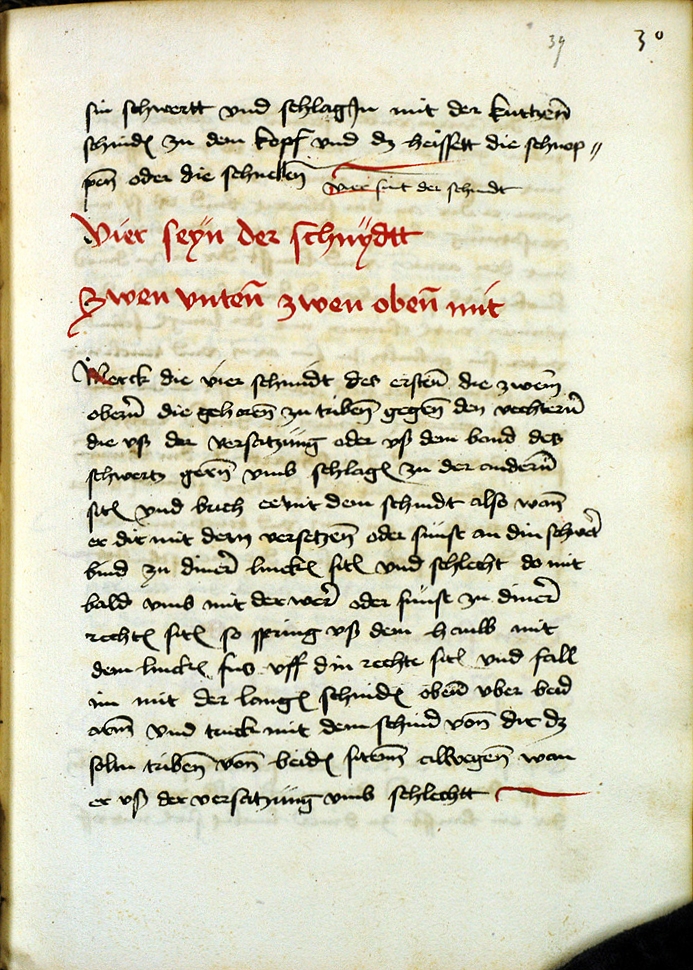 39 30
sin schwertt vnd schlag Jn mit der kurtzen̄
schnid zu dem kopf vnd dz heissett die schnap〃
pen̄ oder die schnellen̄ vier sint der schnidt
Vier seyn der schnydtt
Zwen vnten̄ zwen oben̄ mit
Merck die vier schnidt des ersten̄ die zwen̄
obern̄ die gehoren̄ zu triben̄ gegen̄ den vechtern̄
die vß der versatzüng oder vß dem band des
schwertz gern̄ vmb schlagen zu der andern̄
siten vnd brich es mit dem schnidt also wan̄
er dir mit dem versetzen̄ oder sünst an din schwert
bind zu diner̄ lincken siten vnd schlecht do mit
bald vmb mit der wer̄ oder sünst zu diner̄
rechten siten so spring vß dem haw mit
dem lincken fus vff din rechte siten vnd fall
im mit der langen schniden oben̄ vber beid
arm̄ vnd truck mit dem schnid von̄ dir dz
soltu triben̄ von̄ beiden siten̄ allwegen̄ wan
er vß der versatzüng vmb schlechtt